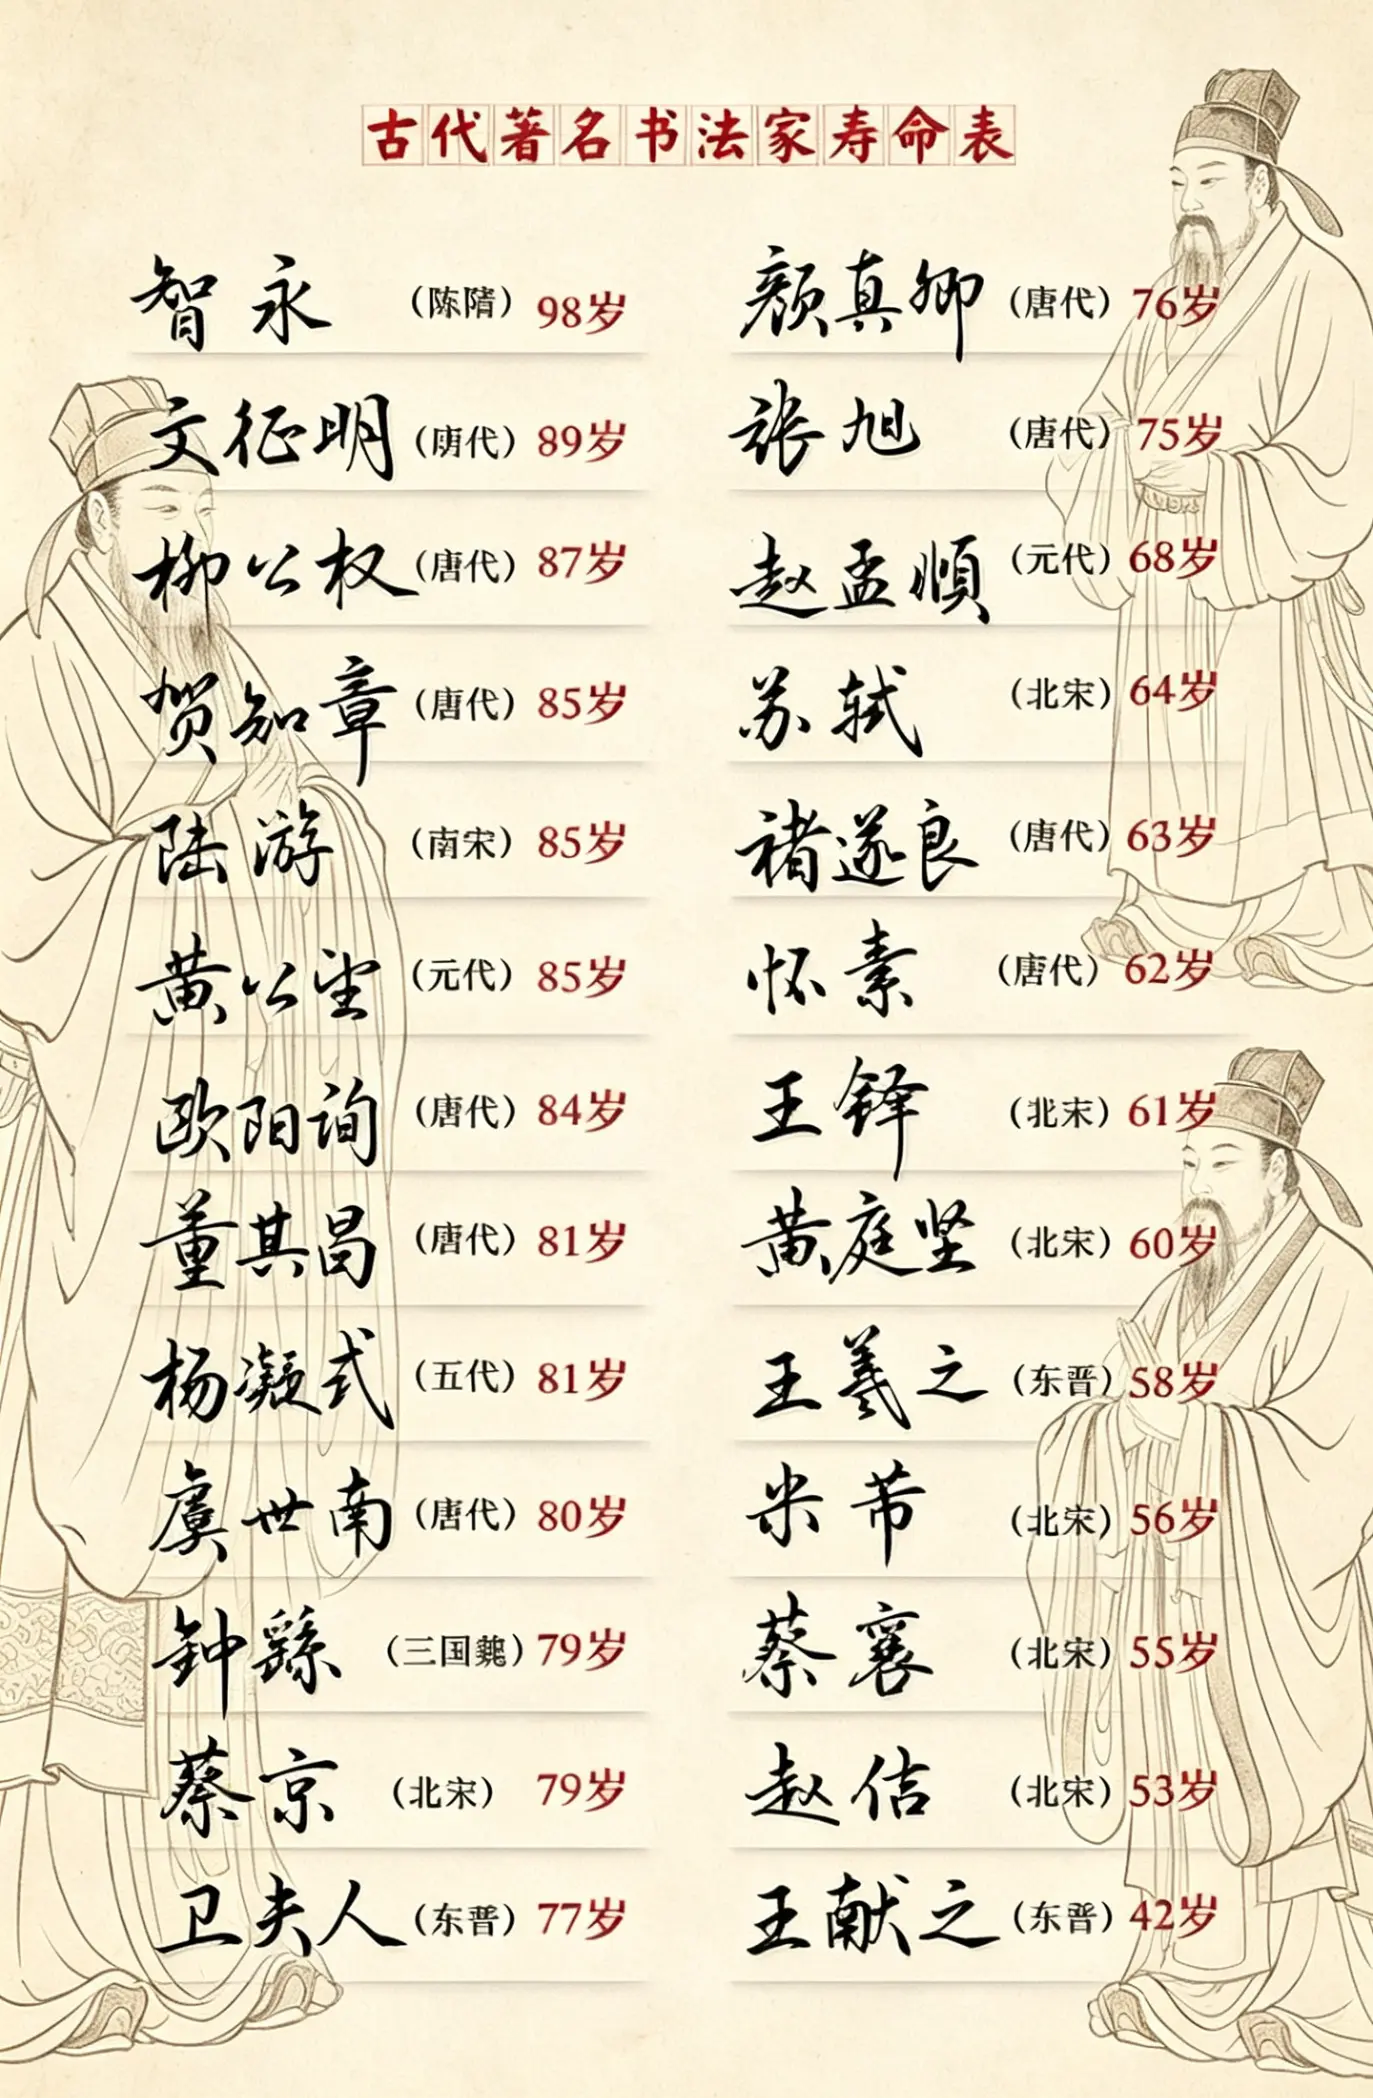 古代著名书法家寿命表
智永 (陈隋) 98岁
文征明 (唐代) 89岁
柳公权 (唐代) 87岁
贺知章 (唐代) 85岁
陆游 (南宋) 85岁
黄公望 (元代) 85岁
欧阳询 (唐代) 84岁
董其昌 (唐代) 81岁
杨凝式 (五代) 81岁
虞世南 (唐代) 80岁
钟繇 (三国魏) 79岁
蔡京 (北宋) 79岁
卫夫人 (东晋) 77岁
颜真卿 (唐代) 76岁
张旭 (唐代) 75岁
赵孟頫 (元代) 68岁
苏轼 (北宋) 64岁
褚遂良 (唐代) 63岁
怀素 (唐代) 62岁
王铎 (北宋) 61岁
黄庭坚 (北宋) 60岁
王羲之 (东晋) 58岁
米芾 (北宋) 56岁
蔡襄 (北宋) 55岁
赵佶 (北宋) 53岁
王献之 (东晋) 42岁